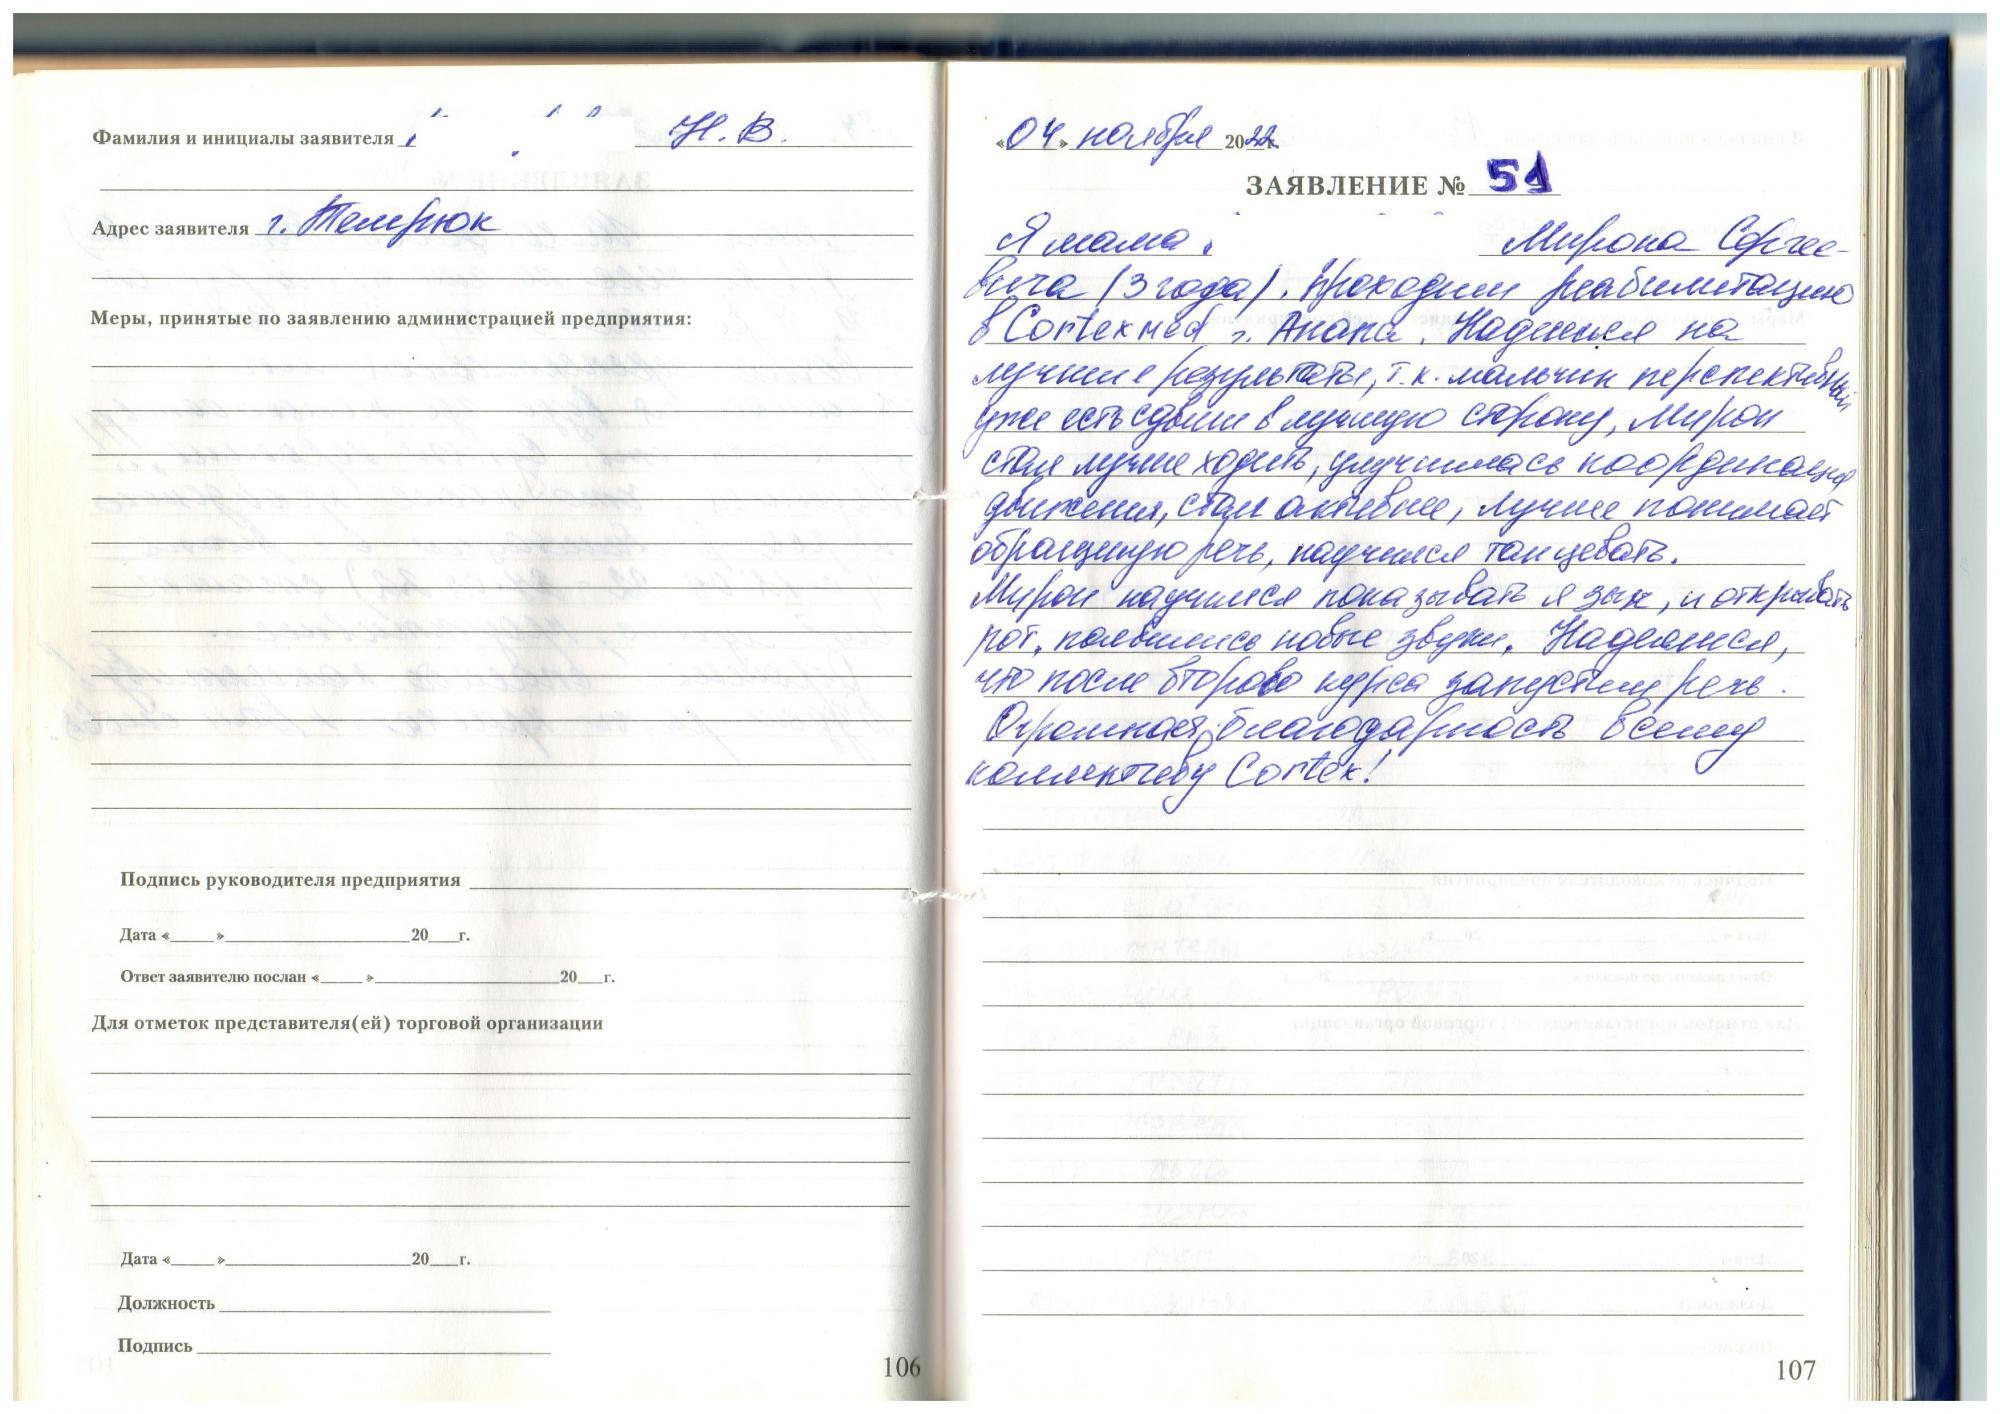 Фамилия и инициалы заявителя Н. В.
Адрес заявителя г. Темрюк
Меры, принятые по заявлению администрацией предприятия:
Подпись руководителя предприятия
Дата « » 20 г.
Ответ заявителю послан « » 20 г.
Для отметок представителя(ей) торговой организации
Дата « » 20 г.
Должность
Подпись
106
«04» ноября 2022г.
ЗАЯВЛЕНИЕ № 51
Я мама Мирона Сергее-
вича (3 года). Проходим реабилитацию
в Cortexmed г. Анапа. Надеемся на
лучшие результаты, т.к. мальчик перспективный
уже есть сдвиги в лучшую сторону, Мирон
стал лучше ходить, улучшилась координация
движения, стал активнее, лучше понимает
обращенную речь, научился танцевать.
Мирон научился показывать язык, и открывать
рот, появились новые звуки. Надеемся,
что после второго курса запустим речь.
Огромная благодарность всему
коллективу Cortex!
107